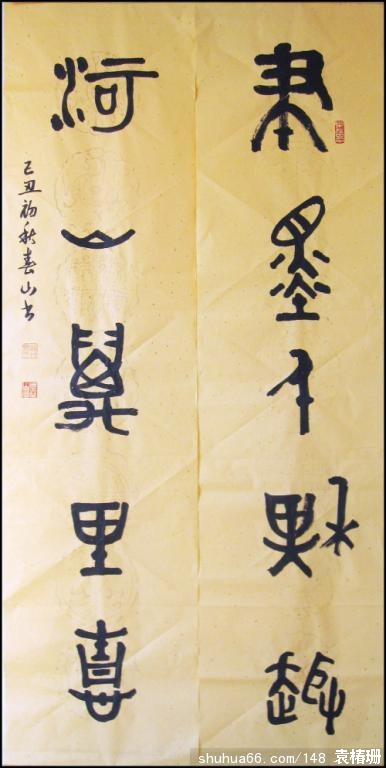 筆墨千秋趣
河山萬里喜
己丑初秋春山书
shuhua66.com/148 袁椿珊